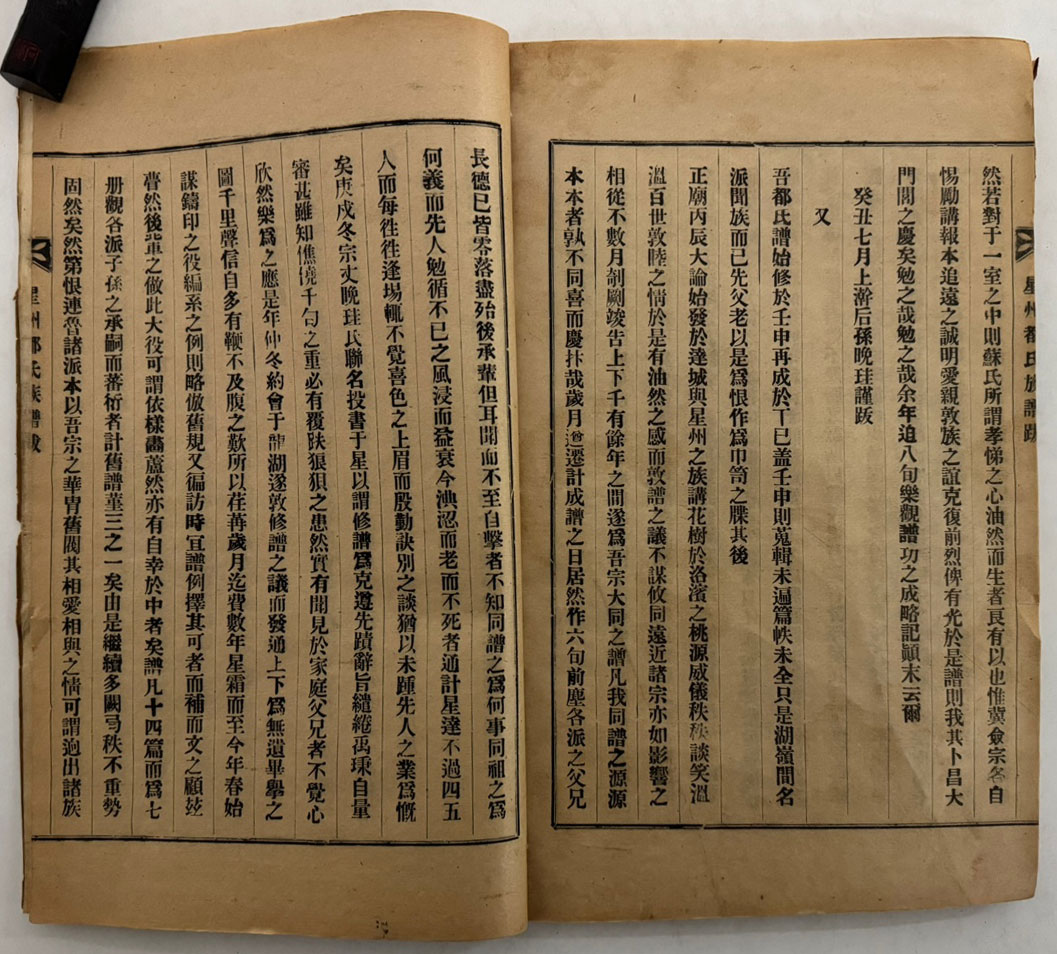 星州都氏族譜跋
然若對于一室之中則蘇氏所謂孝悌之心油然而生者良有以也惟冀僉宗各自
惕勵講報本追遠之誠明愛親敦族之誼克復前烈俾有光於是譜則我其卜昌大
門閭之慶矣勉之哉勉之哉余年追八旬樂觀譜功之成略記顚末云爾
癸丑七月上澣后孫晩珪謹跋
又
吾都氏譜始修於壬申再成於丁巳盖壬申則蒐輯未遍篇帙未全只是湖嶺間名
派聞族而已先父老以是爲恨作爲巾笥之牒其後
正廟丙辰大論始發於達城與星州之族講花樹於洛濱之桃源威儀秩秩談笑溫
溫百世敦睦之情於是有油然之感而敦譜之議不謀攸同遠近諸宗亦如影響之
相從不數月剞劂竣告上下千有餘年之間遂爲吾宗大同之譜凡我同譜之源源
本本者孰不同喜而慶抃哉歲月遒遷計成譜之日居然作六旬前塵各派之父兄
長德已皆零落盡殆後承輩但耳聞而不至自擊者不知同譜之爲何事同祖之爲
何義而先人勉循不已之風浸而益衰今淟涊而老而不死者通計星達不過四五
人而每徃徃逢場輒不覺喜色之上眉而殷勤訣別之談猶以未踵先人之業爲慨
矣庚戌冬宗丈晩珪氏聯名投書于星以謂修譜爲克遵先蹟辭旨繾綣禹秉自量
審甚雖知僬僥千匀之重必有覆趺狼狽之患然實有聞見於家庭父兄者不覺心
欣然樂爲之應是年仲冬約會于龍湖遂敦修譜之議而發通上下爲無遺畢擧之
圖千里聲信自多有鞭不及腹之歎所以荏苒歲月迄費數年星霜而至今年春始
謀鑄印之役編系之例則略倣舊規又徧訪時宜譜例擇其可者而補而文之顧玆
瞢然後輩之做此大役可謂依樣畵蘆然亦有自幸於中者矣譜凡十四篇而爲七
册觀各派子孫之承嗣而蕃衍者計舊譜菫三之一矣由是繼續多闕弓秩不重勢
固然矣然第恨連晉諸派本以吾宗之華胄舊閥其相愛相與之情可謂逈出諸族
星州都氏族譜跋